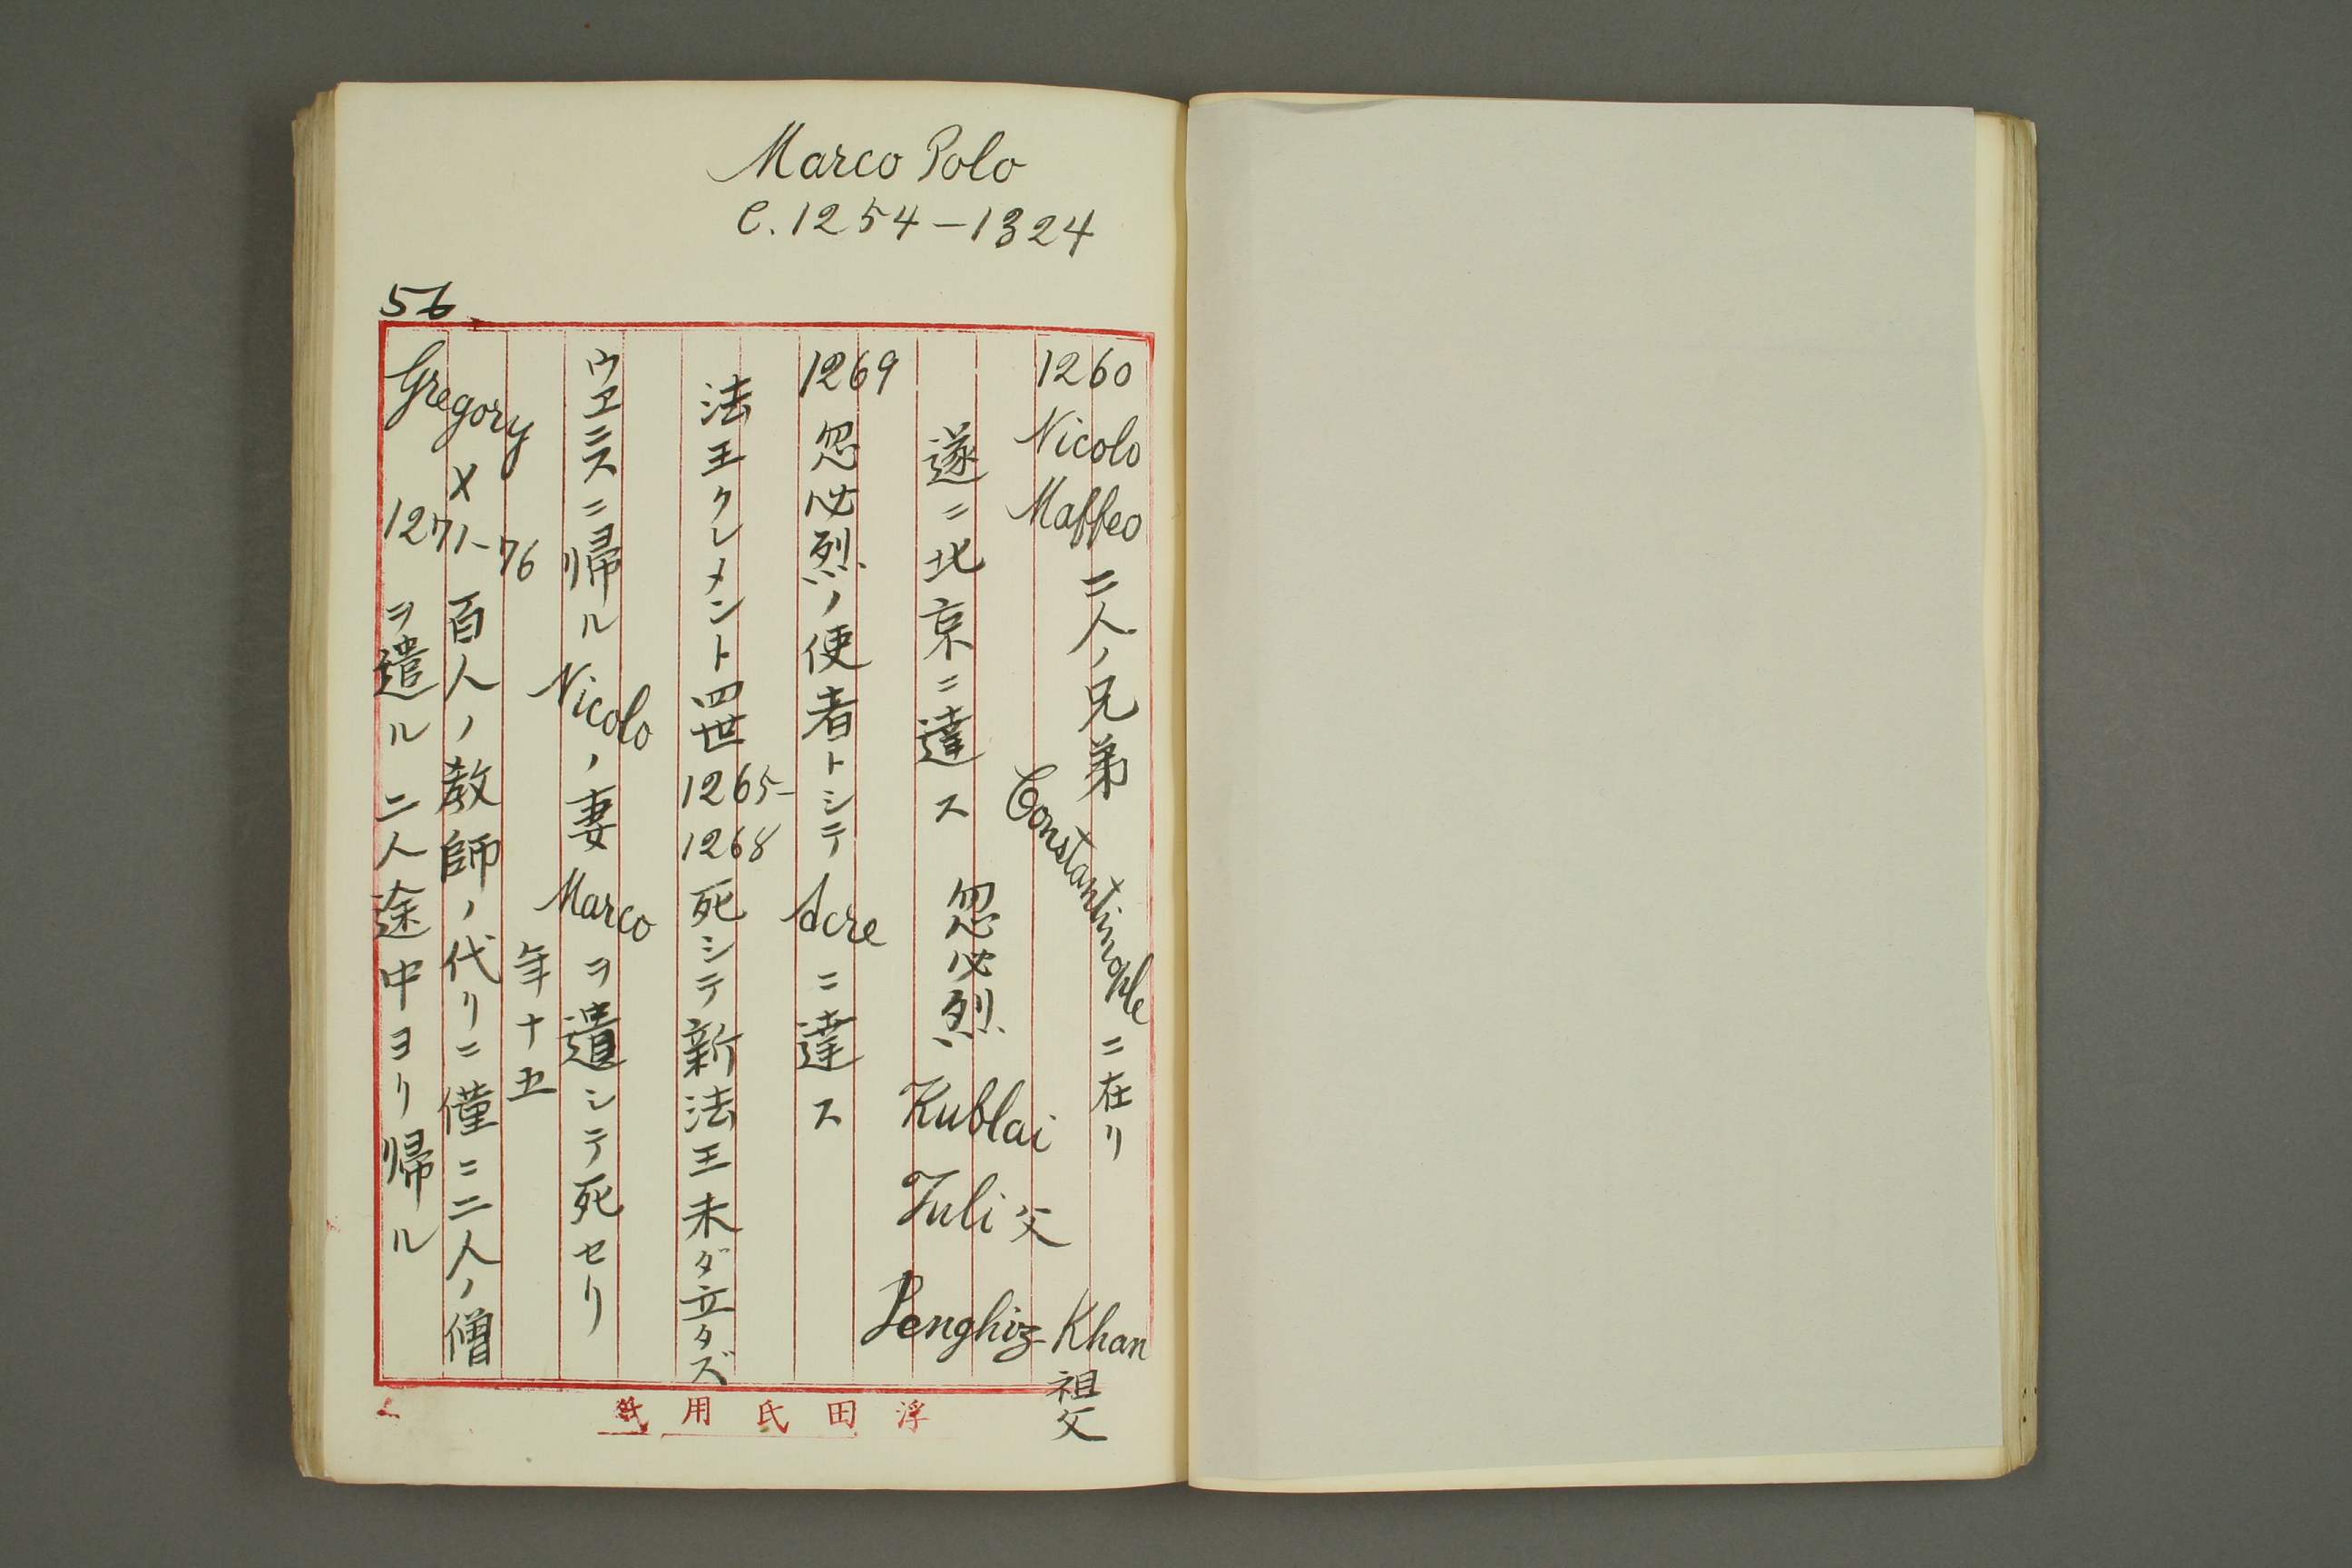 Marco Polo
C. 1254-1324
56
1260 Nicolo Maffeo 二人ノ兄弟 Constantinople ニ在リ
遂ニ北京ニ達ス 忽必烈 Kublai Tuli父 Jenghiz Khan 祖父
1269 忽必烈ノ使者トシテ Acre ニ達ス
法王クレメント四世 1265-1268 死シテ新法王未ダ立タズ
ヴェニスニ帰ル Nicoloノ妻 Marco ヲ遺シテ死セリ
年十五
Gregory X 1271-76 百人ノ教師ノ代リニ僅ニ二人ノ僧
ヲ遣ル 二人途中ヨリ帰ル
浮田氏用紙